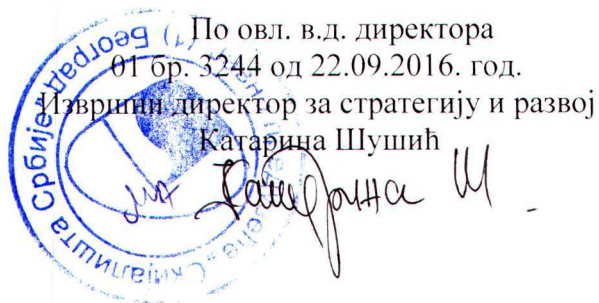 По овл. в.д. директора
01 бр. 3244 од 22.09.2016. год.
Извршни директор за стратегију и развој
Катарина Шушић
Катарина Ш
Скијалишта Србије
(1)
Београд